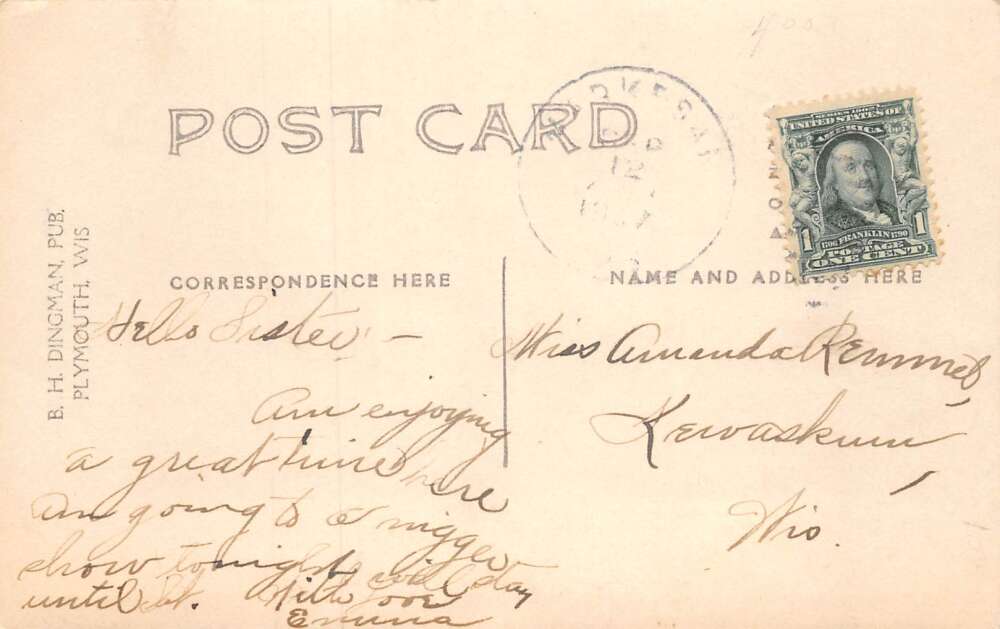 POST CARD
MARKESAN
SERIES 1902
UNITED STATES OF
AMERICA
1 1
1706 FRANKLIN 1790
POSTAGE
ONE CENT
B. H. DINGMAN, PUB.
PLYMOUTH, WIS
CORRESPONDENCE HERE
NAME AND ADDRESS HERE
Hello Sister: -
Am enjoying
a great time here
am going to a nigger
show tonight will stay
until
With love
Emma
Miss Amanda Remmel,
Kewaskum,
Wis.